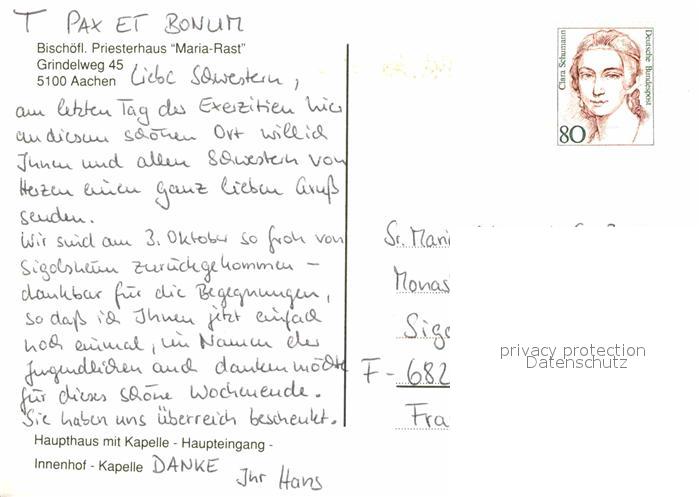 T PAX ET BONUM
Bischöfl. Priesterhaus "Maria-Rast"
Grindelweg 45
5100 Aachen Liebe Schwestern,
am letzten Tag der Exerzitien hier
an diesem schönen Ort will ich
Ihnen und allen Schwestern von
Herzen einen ganz lieben Gruß
senden.
Wir sind am 3. Oktober so froh von
Sigolsheim zurückgekommen –
dankbar für die Begegnungen,
so daß ich Ihnen jetzt einfach
noch einmal, im Namen der
Jugendlichen auch danken möchte
für dieses schöne Wochenende.
Sie haben uns überreich beschenkt.
Haupthaus mit Kapelle - Haupteingang -
Innenhof - Kapelle DANKE
Ihr Hans
Clara Schumann
Deutsche Bundespost
80
Sr. Mari
Monas
Sigo
F - 682
Fra
privacy protection
Datenschutz